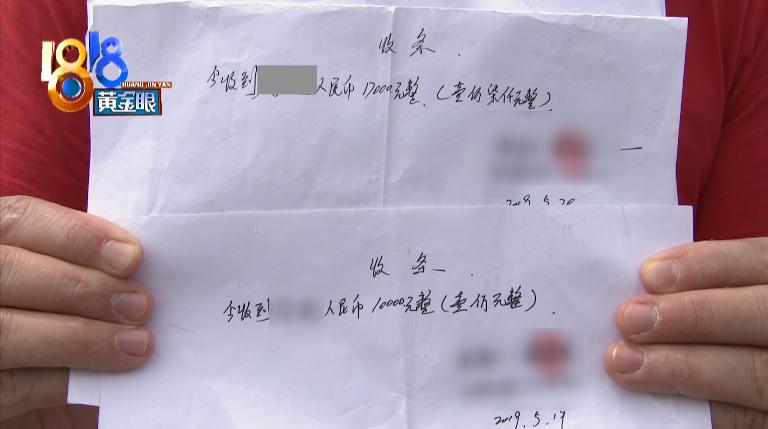 1818
HUANGJINYAN
黄金眼
收条.
今收到 人民币17000元整.(壹佰柒仟元整).
2019.5.20
收条.
今收到 人民币10000元整(壹佰元整).
2019.5.17